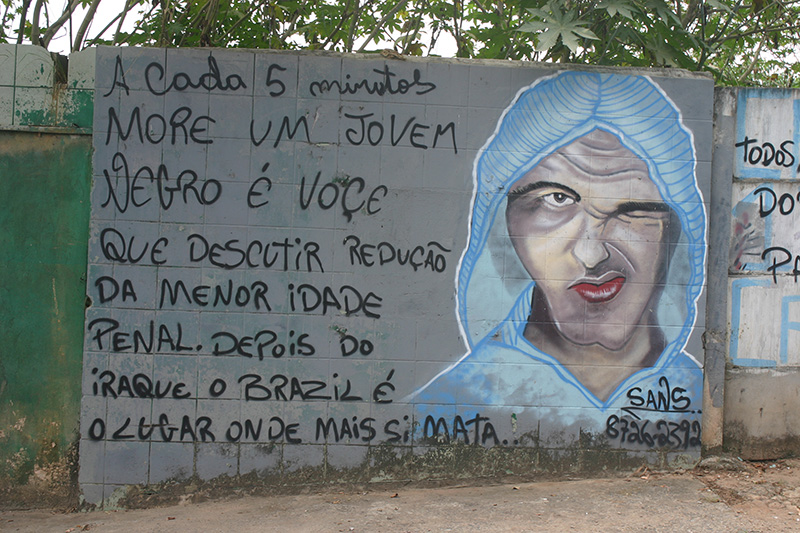 A Cada 5 minutos
MORE UM JOVEM
NEGRO É VOÇE
QUE DESCUTIR REDUÇÃO
DA MENOR IDADE
PENAL. DEPOIS DO
IRAQUE O BRAZIL É
O LUGAR ONDE MAIS SI MATA..
SANS..
8726-2392
TODOS
DO
PA